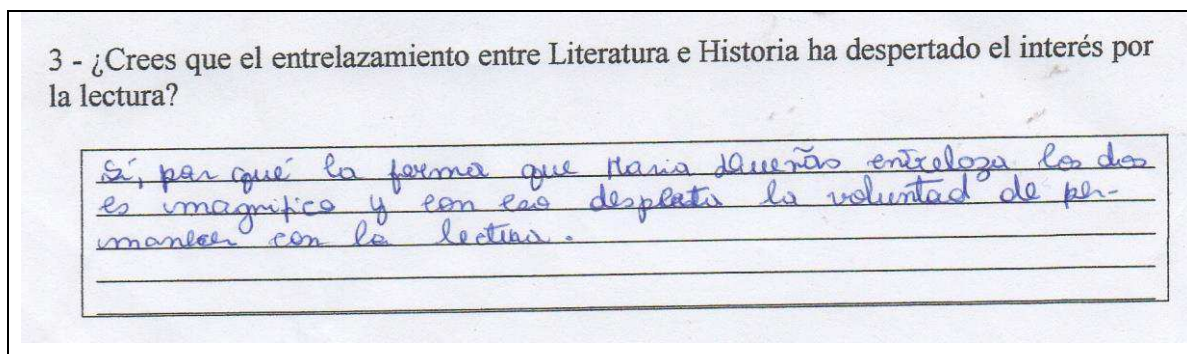 3 - ¿Crees que el entrelazamiento entre Literatura e Historia ha despertado el interés por
la lectura?
Sí, por qué la forma que Maria Dueñas entrelaza los dos
es magnifico y con eso desperta la voluntad de per-
manecer con la lectura.